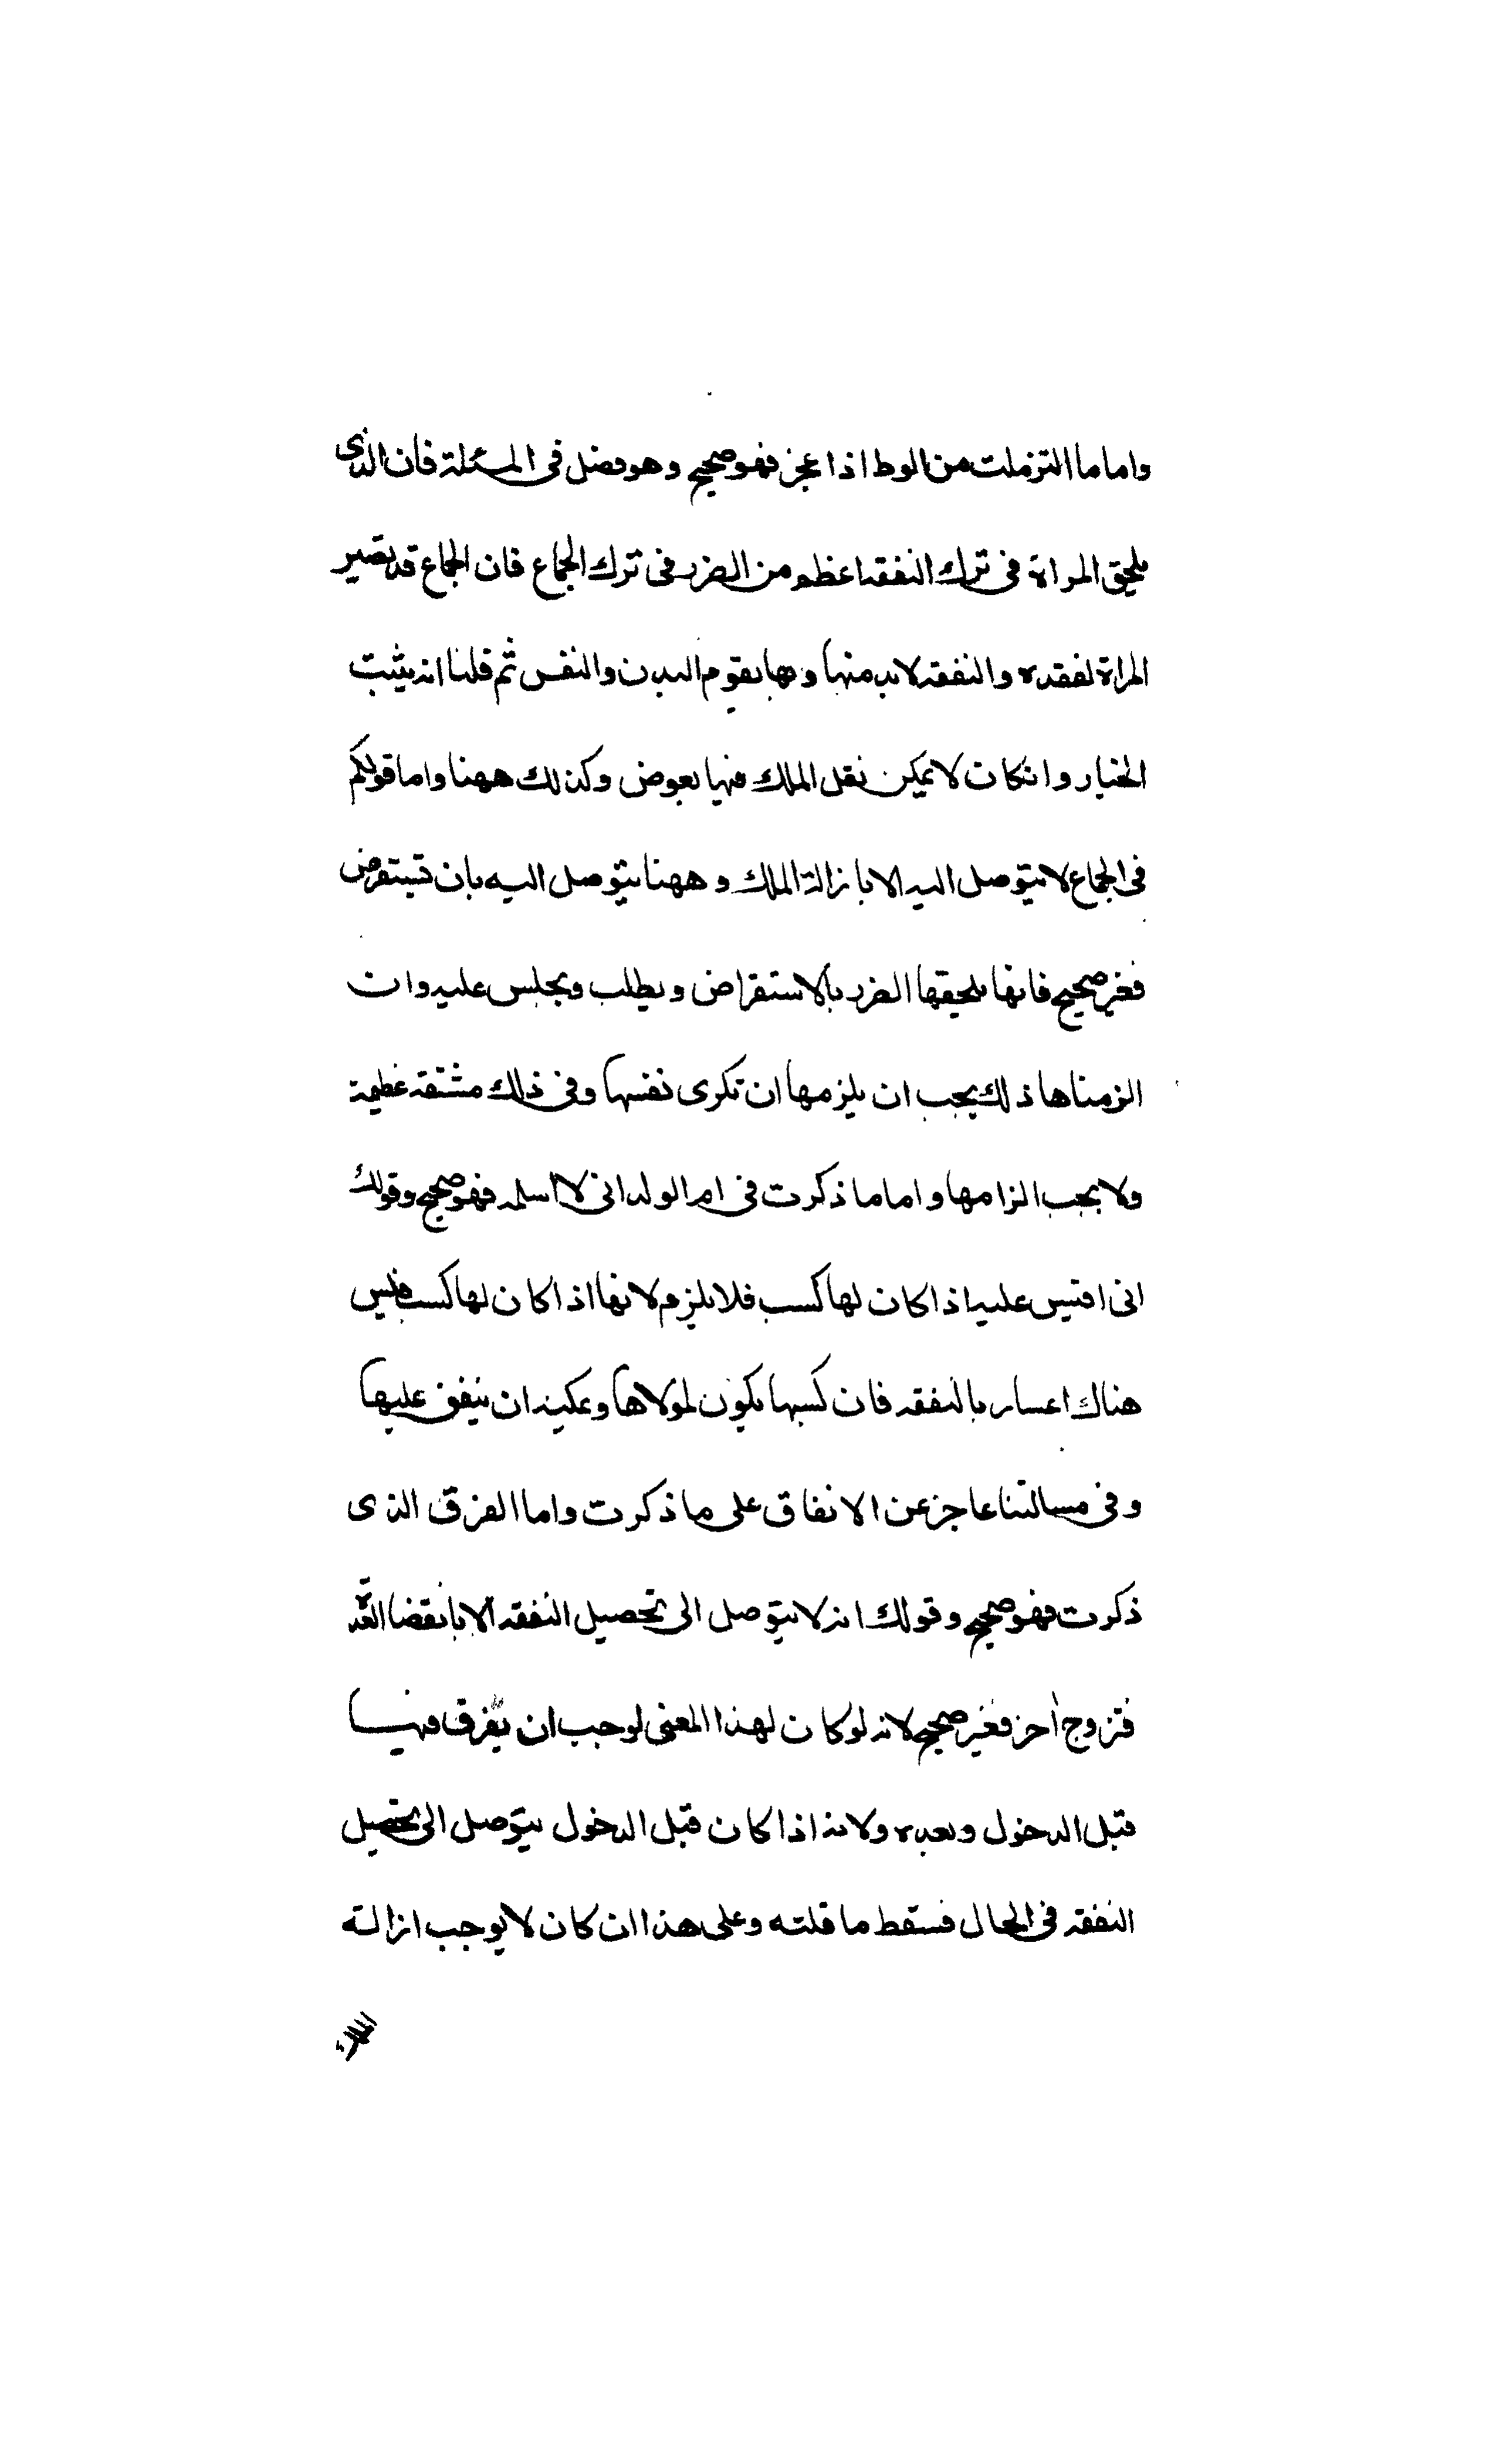 واما ما التزملت من الوط اذا عجز فهو صحيح وهو فضل فى المسئلة فان الذى
يلحق المراة فى ترك النفقه اعظم من الضرر فى ترك الجماع فان الجماع قد يصير
المراة لفقده والنفقه لابد منها وبها يقوم البدن والنفس ثم قلنا انه يثبت
الخيار وان كان لا يمكن نقل الملك فيها بعوض وكذلك ههنا واما قولكم
فى الجماع لا يتوصل اليه الا بازالة الملك وههنا يتوصل اليه بان تستقرض
فغير صحيح فانها يلحقها الضرر بالاستقراض ويطلب ويجلس عليه وان
الزمناها ذلك يجب ان يلزمها ان تكرى نفسها وفى ذلك مشقة عظيمة
ولا يجب الزامها واما ما ذكرت فى ام الولد انى لا اسلمه فهو صحيح وقولك
انى اقيس عليه اذا كان لها كسب فلا يلزم لانها اذا كان لها كسب فليس
هناك اعسار بالنفقه فان كسبها يكون لمولاها ويمكنه ان ينفق عليها
وفى مسالتنا عاجز عن الانفاق على ما ذكرت واما الفرق الذى
ذكرت فهو صحيح وقولك انه لا يتوصل الى تحصيل النفقه الا بانقضا العدة
فتزوج اخر فغير صحيح لانه لو كان لهذا المعنى لوجب ان يفرق فيها
قبل الدخول وبعده ولانه اذا كان قبل الدخول يتوصل الى تحصيل
النفقه فى الحال فسقط ما قلته وعلى هذا ان كان لا يوجب ازالته